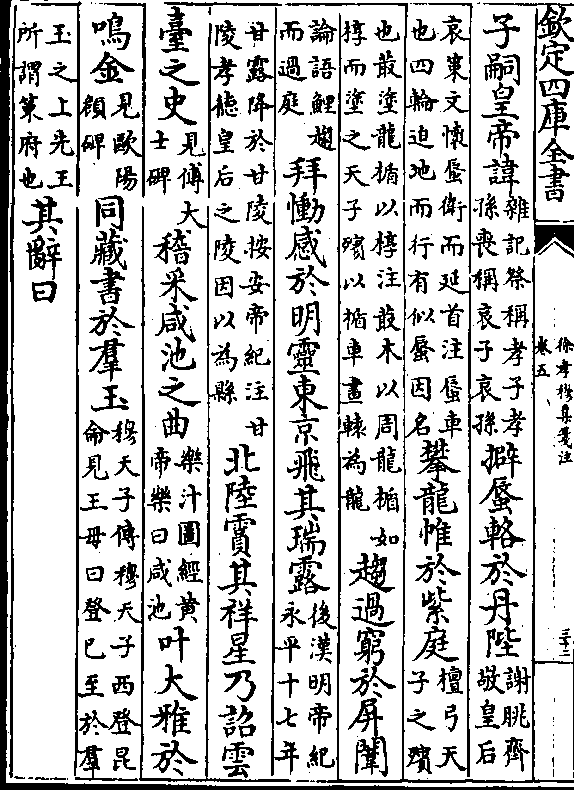 欽定四庫全書
徐孝穆集箋注
卷五
三十二
子嗣皇帝諱雜記祭稱孝子孝孫喪稱哀子哀孫擗蜃輅於丹陛謝朓齊敬皇后
哀策文懷蜃衛而延首注蜃車也四輪迫地而行有似蜃因名攀龍帷於紫庭檀弓天子之殯
也菆塗龍楯以椁注菆木以周龍楯如椁而塗之天子殯以楯車畫轅為龍趨過窮於屏闈
論語鯉趨而過庭拜慟感於明靈東京飛其瑞露後漢明帝紀永平十七年
甘露降於甘陵按安帝紀注甘陵孝德皇后之陵因以為縣北陸霣其祥星乃詔雲
臺之史見傅大士碑稽采咸池之曲樂汁圖經黃帝樂曰咸池叶大雅於
鳴金見歐陽頠碑同藏書於羣玉穆天子傳穆天子西登昆侖見王母曰登巳至於羣
玉之上先王所謂策府也其辭曰